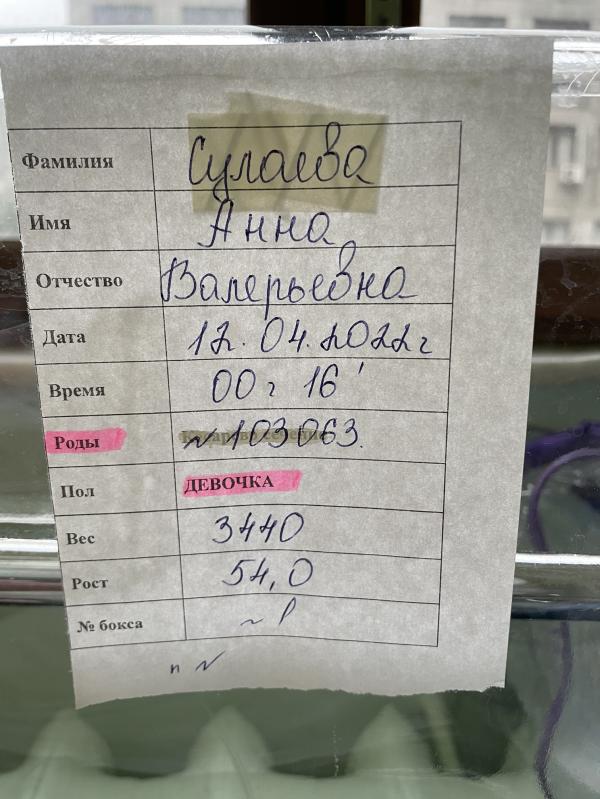 Фамилия Сулаева
Имя Анна
Отчество Валерьевна
Дата 12.04.2022г
Время 00г 16'
Роды № 103063.
Пол ДЕВОЧКА
Вес 3440
Рост 54,0
№ бокса